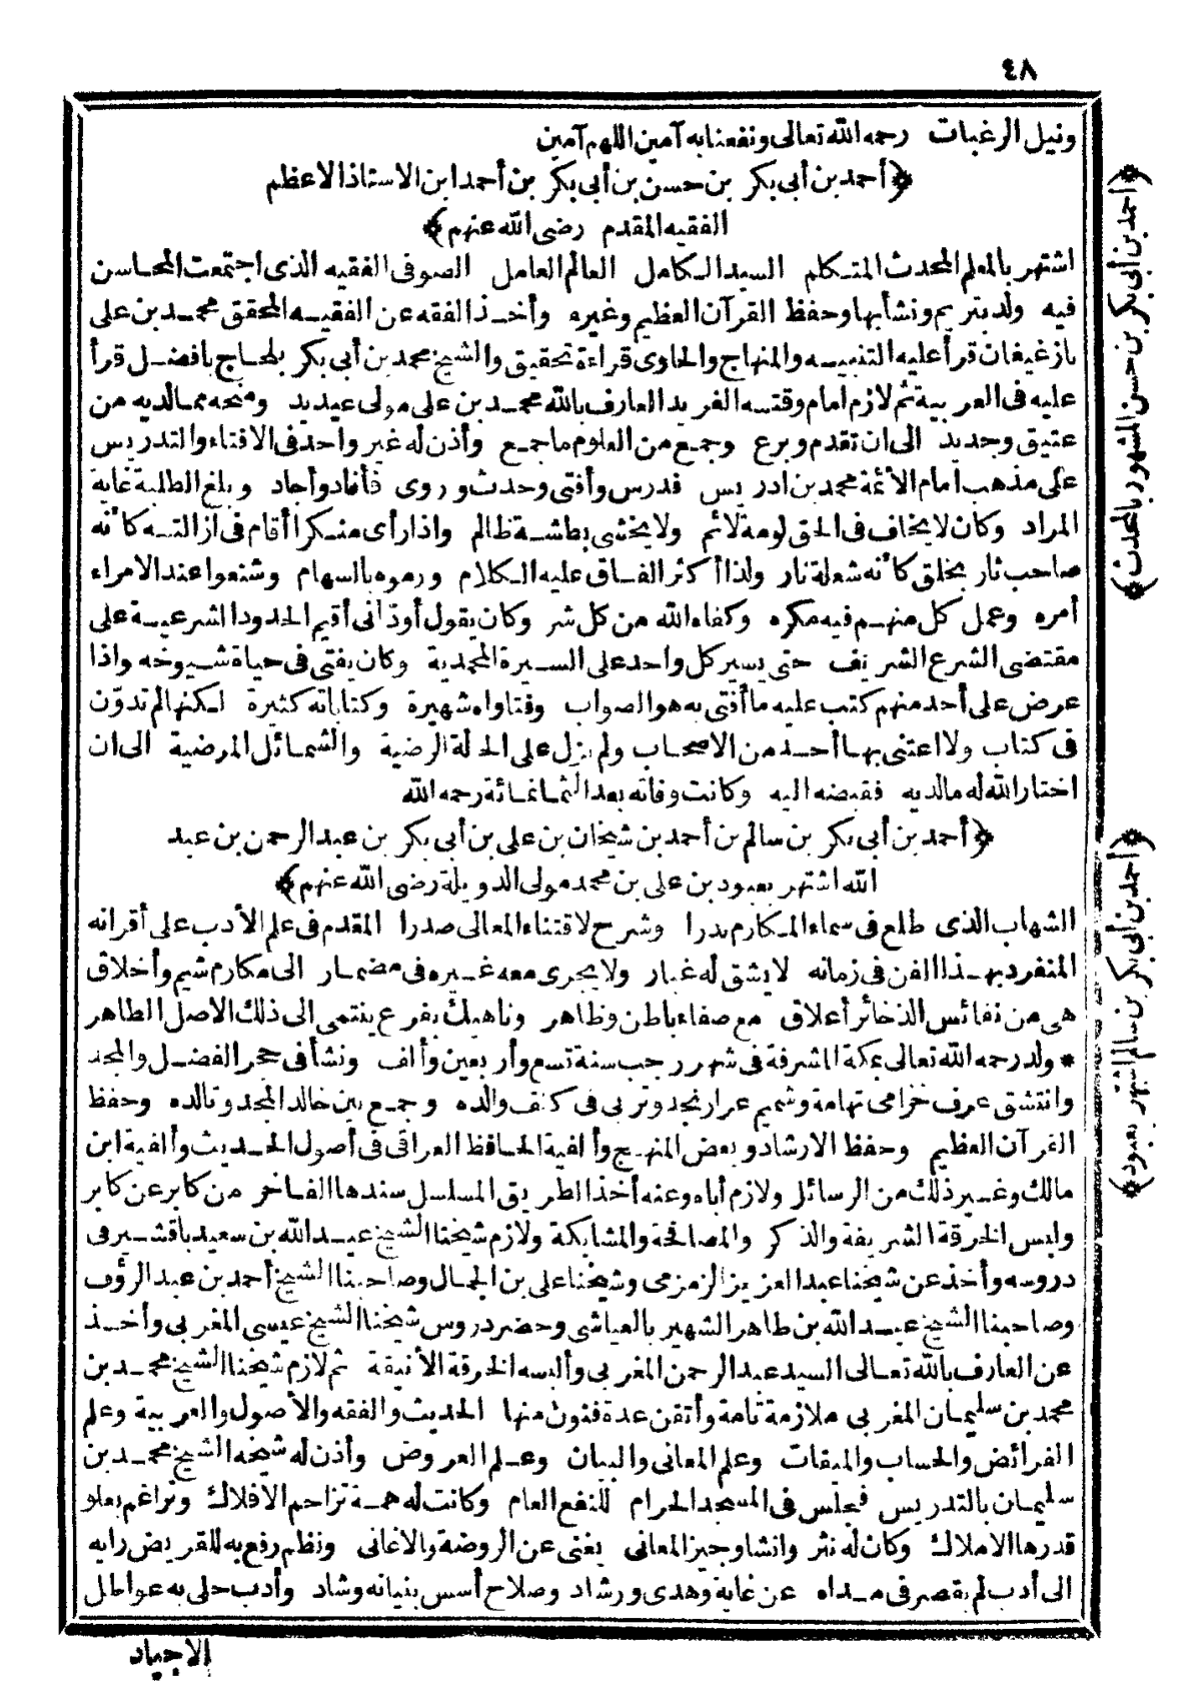 ٤٨
ونيل الرغبات رحمه الله تعالى ونفعنا به آمين اللهم آمين
﴿أحمد بن أبي بكر بن حسن بن أبي بكر بن أحمد ابن الاستاذ الاعظم
الفقيه المقدم رضى الله عنهم﴾
اشتهر بالمعلم المحدث المتكلم السيد الكامل العالم العامل الصوفى الفقيه الذى اجتمعت المحاسن
فيه ولد بتريم ونشأ بها وحفظ القرآن العظيم وغيره وأخذ الفقه عن الفقيه المحقق محمد بن على
بازغيفان قرأ عليه التنبيه والمنهاج والحاوى قراءة تحقيق والشيخ محمد بن أبى بكر بلحاج بافضل قرأ
عليه فى العربية ثم لازم امام وقته الفريد العارف بالله محمد بن على مولى عيديد ومنحه ممالديه من
عتيق وجديد الى ان تقدم وبرع وجمع من العلوم ما جمع وأذن له غير واحد فى الافتاء والتدريس
على مذهب امام الأئمة محمد بن ادريس فدرس وأفتى وحدث وروى فأفاد وأجاد وبلغ الطلبة غاية
المراد وكان لا يخاف فى الحق لومة لائم ولا يخشى بطاشة ظالم واذا رأى منكرا أقام فى ازالته كأنه
صاحب ثار بخلق كأنه شعلة نار ولذا أكثر الفساق عليه الكلام ورموه بالسهام وشنعوا عند الامراء
أمره وعمل كل منهم فيه مكره وكفاه الله من كل شر وكان يقول أود انى أقيم الحدود الشرعية على
مقتضى الشرع الشريف حتى يسير كل واحد على السيرة المحمدية وكان يفتى فى حياة شيوخه واذا
عرض على أحد منهم كتب عليه ما أفتى به هو الصواب وفتاواه شهيرة وكتاباته كثيرة لكنها لم تدوّن
فى كتاب ولا اعتنى بها أحد من الاصحاب ولم يزل على الحلة الرضية والشمائل المرضية الى ان
اختار الله له مالديه فقبضه اليه وكانت وفاته بعد الثمانمائة رحمه الله
﴿أحمد بن أبى بكر بن سالم بن أحمد بن شيخان بن على بن أبى بكر بن عبد الرحمن بن عبد
الله اشتهر بعبود بن على بن محمد مولى الدويلة رضى الله عنهم﴾
الشهاب الذى طلع فى سماء المكارم بدرا وشرح لاقتناء المعالى صدرا المقدم فى علم الأدب على أقرانه
المنفرد بهذا الفن فى زمانه لا يشق له غبار ولا يجرى معه غيره فى مضمار الى مكارم شيم وأخلاق
هى من نفائس الذخائر أعلاق مع صفاء باطن وظاهر وناهيك بفرع ينتمى الى ذلك الاصل الطاهر
* ولد رحمه الله تعالى بمكة المشرفة فى شهر رجب سنة تسع وأربعين وألف ونشأ فى حجر الفضل والمجد
وانتشق عرف خزامى تهامة وشميم عرار نجد وتربى فى كنف والده وجمع بين خالد المجد وتالده وحفظ
القرآن العظيم وحفظ الارشاد وبعض المنهج وألفية الحافظ العراقى فى أصول الحديث وألفية ابن
مالك وغير ذلك من الرسائل ولازم أباه وعنه أخذ الطريق المسلسل سندها الفاخر من كابر عن كابر
ولبس الخرقة الشريفة والذكر والمصافحة والمشابكة ولازم شيخنا الشيخ عبد الله بن سعيد باقشير فى
دروسه وأخذ عن شيخنا عبد العزيز الزمزمى وشيخنا على بن الجمال وصاحبنا الشيخ أحمد بن عبد الرؤف
وصاحبنا الشيخ عبد الله بن طاهر الشهير بالعباشى وحضر دروس شيخنا الشيخ عيسى المغربى وأخذ
عن العارف بالله تعالى السيد عبد الرحمن المغربى وألبسه الخرقة الأنيقة ثم لازم شيخنا الشيخ محمد بن
محمد بن سليمان المغربى ملازمة تامة وأتقن عدة فنون منها الحديث والفقه والأصول والعربية وعلم
الفرائض والحساب والميقات وعلم المعانى والبيان وعلم العروض وأذن له شيخه الشيخ محمد بن
سليمان بالتدريس فجلس فى المسجد الحرام للنفع العام وكانت له همة تزاحم الافلاك وتراغم بعلو
قدرها الاملاك وكان له نثر وانشا وجيز المعانى يغنى عن الروضة والاغانى ونظم رفع به للقريض رايه
الى أدب لم يقصر فى مداه عن غاية وهدى ورشاد وصلاح أسس بنيانه وشاد وأدب حلى به عواطل
الاجياد
﴿أحمد بن أبى بكر بن حسن المشهور بالمحدث﴾
﴿أحمد بن أبى بكر بن سالم اشتهر بعبود﴾